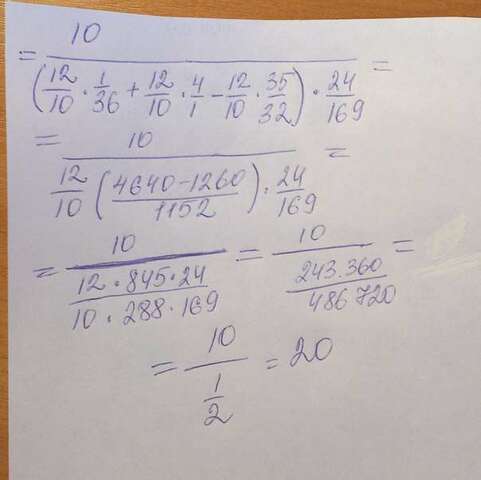 = 10 / ((12/10 · 1/36 + 12/10 · 4/1 - 12/10 · 35/32) · 24/169) =
= 10 / (12/10 (4640-1260 / 1152) · 24/169) =
= 10 / (12·845·24 / 10·288·169) = 10 / (243.360 / 486720) =
= 10 / (1/2) = 20